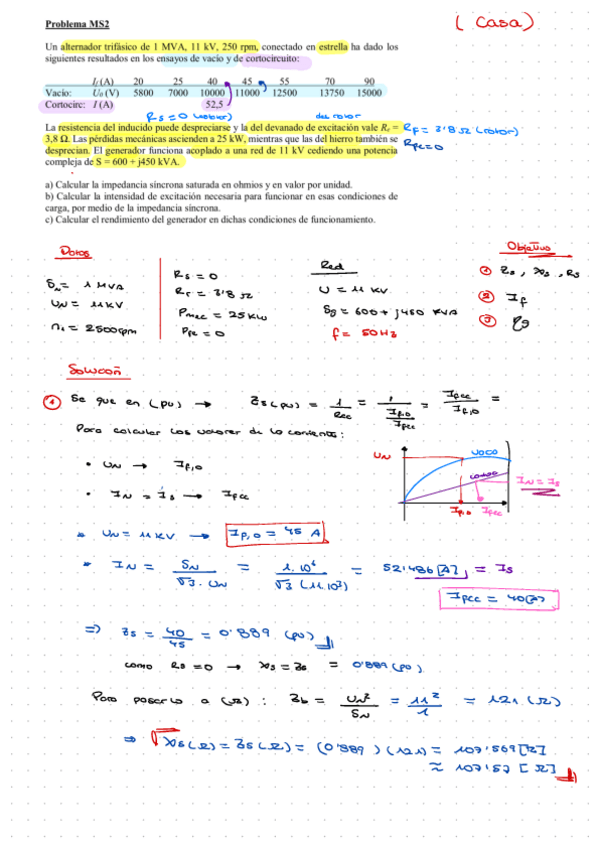 Problema MS2
( Casa )
Un alternador trifásico de 1 MVA, 11 kV, 250 rpm, conectado en estrella ha dado los
siguientes resultados en los ensayos de vacío y de cortocircuito:
If (A) 20 25 40 45 55 70 90
Vacío: U0 (V) 5800 7000 10000 11000 12500 13750 15000
Cortocirc: I (A) 52,5
Rs = 0 (estator)
del rotor
La resistencia del inducido puede despreciarse y la del devanado de excitación vale Re =
RF = 3'8 Ω (rotor)
3,8 Ω. Las pérdidas mecánicas ascienden a 25 kW, mientras que las del hierro también se
RFe = 0
desprecian. El generador funciona acoplado a una red de 11 kV cediendo una potencia
compleja de S = 600 + j450 kVA.
a) Calcular la impedancia síncrona saturada en ohmios y en valor por unidad.
b) Calcular la intensidad de excitación necesaria para funcionar en esas condiciones de
carga, por medio de la impedancia síncrona.
c) Calcular el rendimiento del generador en dichas condiciones de funcionamiento.
Datos
SN = 1 MVA
UN = 11 KV
n1 = 2500 rpm
Rs = 0
Rr = 3'8 Ω
Pmec = 25 KW
PFe = 0
Red
U = 11 KV
Sg = 600 + j450 KVA
f = 50 Hz
Objetivo
① Zs, Xs, Rs
② If
③ ηg
Solucoñ
① Se que en (pu) → Zs (pu) = 1 / Rcc = 1 / (If,0 / Ifcc) = Ifcc / If,0 =
Para calcular los valores de la corriente:
• UN → If,0
• IN = Is → Ifcc
UN
Uoco
IN = Is
If,0 Ifcc
* UN = 11 KV → If,0 = 45 A
* IN = SN / √3 · UN = 1·10⁶ / √3 (11·10³) = 52'486 [A] = Is
Ifcc = 40(A)
⇒ Zs = 40 / 45 = 0'889 (pu)
como Rs = 0 → Xs = Zs = 0'889 (pu)
Para pasarlo a (Ω) : Zb = UN² / SN = 11² / 1 = 121 (Ω)
⇒ Xs (Ω) = Zs (Ω) = (0'889) (121) = 107'569 [Ω]
≈ 107'57 [Ω]